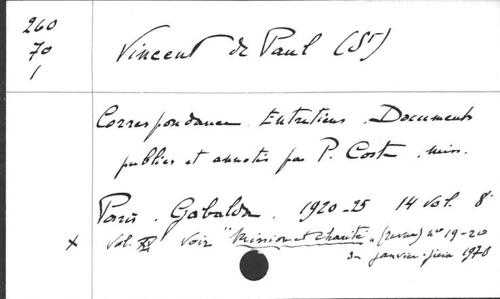 260
70
1
Vincent de Paul (St)
Correspondance. Entretiens. Documents
publiés et annotés par P. Coste, miss.
Paris. Gabalda. 1920-25 14 vol. 8°
x vol. XV voir "Mission et Charité" (revue) n° 19-20
de janvier-juin 1970